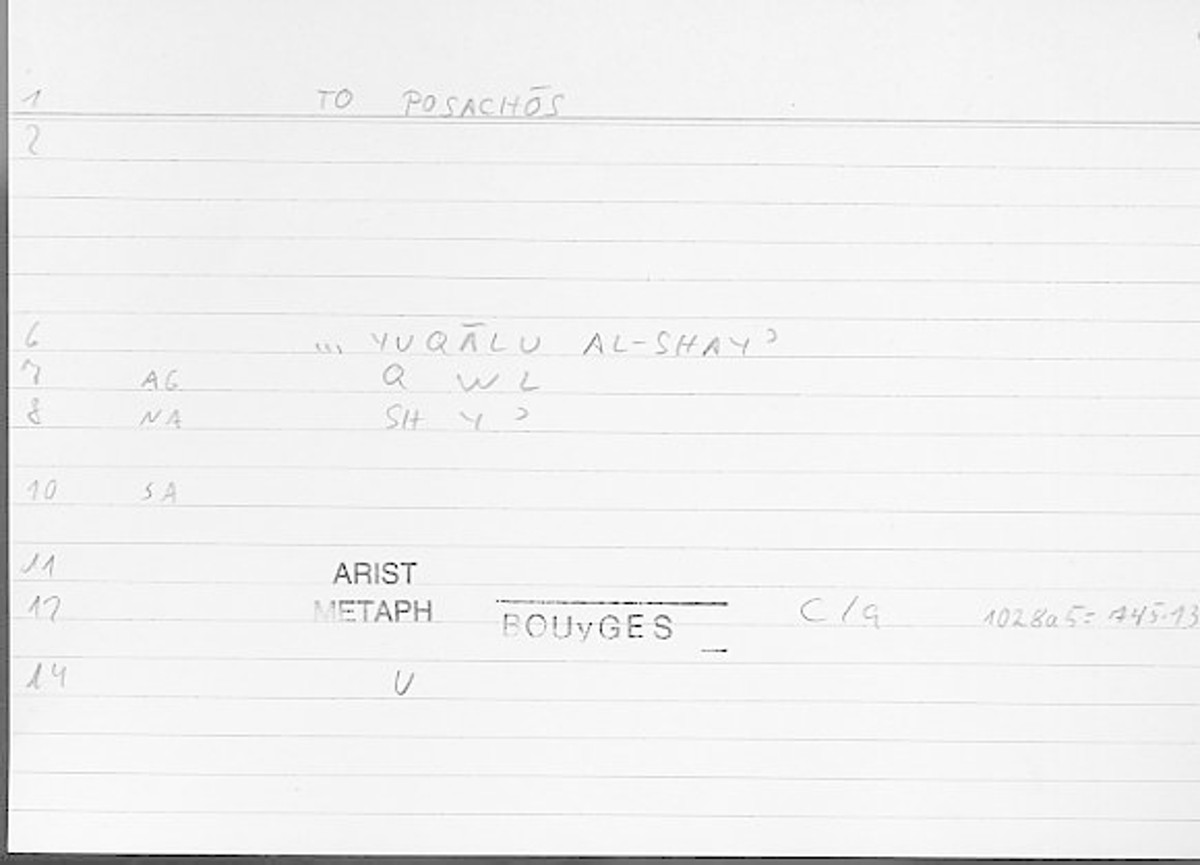 1 TO POSACHŌS
2
6 ,,, YUQĀLU AL-SHAYʾ
7 AG Q W L
8 NA SH Y ʾ
10 SA
11 ARIST
12 METAPH BOUyGES C/G 1028a5= 745.13
14 U